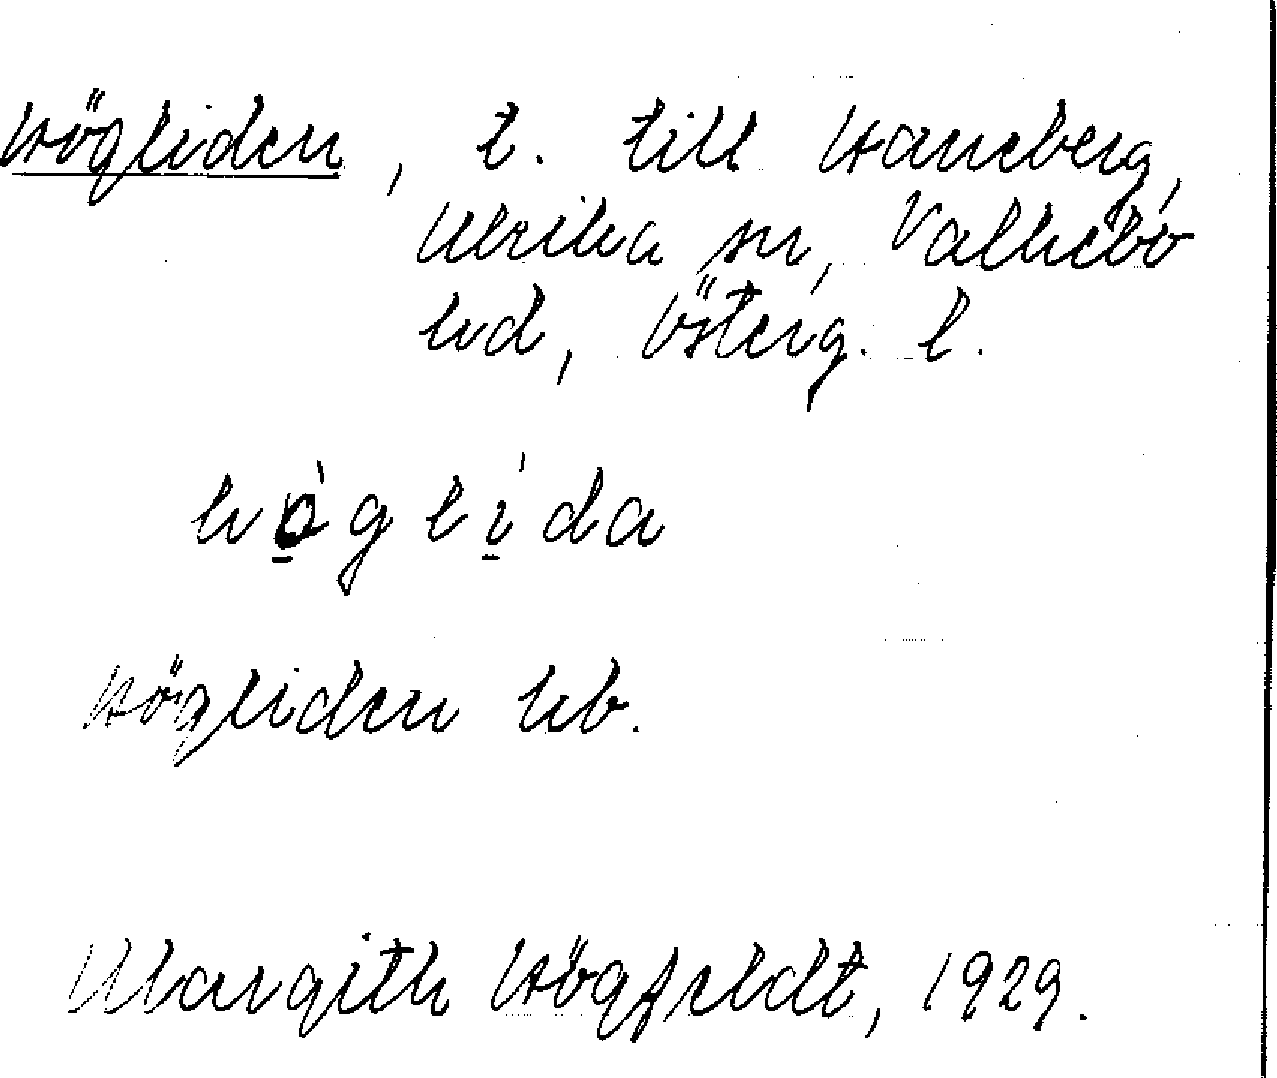 Högliden, t. till Haneberg,
Ulrika sn, Valkebo
hd, Österg. l.
hǫ̀glìda
Högliden kb.
Margith Högfeldt, 1929.